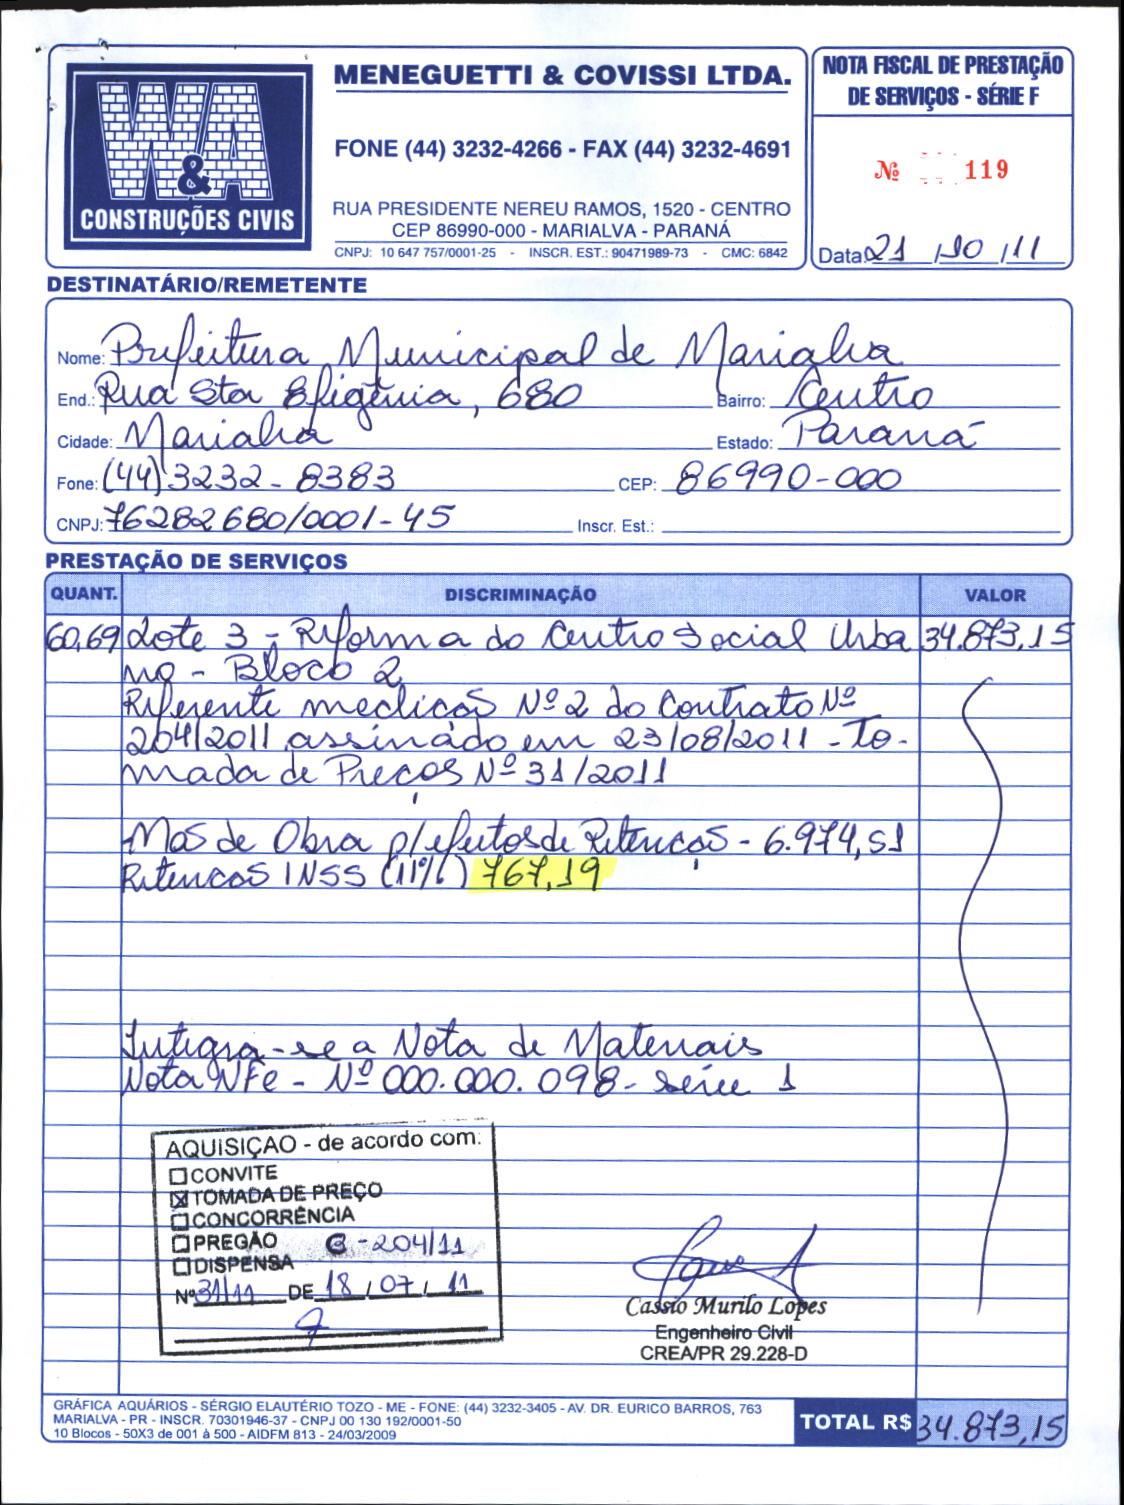 W&A
CONSTRUÇÕES CIVIS
MENEGUETTI & COVISSI LTDA.
FONE (44) 3232-4266 - FAX (44) 3232-4691
RUA PRESIDENTE NEREU RAMOS, 1520 - CENTRO
CEP 86990-000 - MARIALVA - PARANÁ
CNPJ: 10 647 757/0001-25 - INSCR. EST.: 90471989-73 - CMC: 6842
NOTA FISCAL DE PRESTAÇÃO
DE SERVIÇOS - SÉRIE F
Nº 119
Data: 21/10/11
DESTINATÁRIO/REMETENTE
Nome: Prefeitura Municipal de Marialva
End.: Rua Sta Efigênia, 680 Bairro: Centro
Cidade: Marialva Estado: Paraná
Fone: (44) 3232-8383 CEP: 86990-000
CNPJ: 76282680/0001-45 Inscr. Est.:
PRESTAÇÃO DE SERVIÇOS
QUANT. DISCRIMINAÇÃO VALOR
60,69 Lote 3 - Reforma do Centro Social Urba 34.873,15
no - Bloco 2
Referente medicão Nº 2 do Contrato Nº
204/2011 assinado em 23/08/2011 - To-
mada de Preços Nº 31/2011
Mão de Obra p/ efeitos de Retenção - 6.974,51
Retencão INSS (11%) 767,19
Integra-se a Nota de Materiais
Nota NFe - Nº 000.000.098 - série 1
AQUISIÇAO - de acordo com:
CONVITE
TOMADA DE PREÇO
CONCORRÊNCIA
PREGÃO C-204/11
DISPENSA
Nº 31/11 DE 18/07/11
Cassio Murilo Lopes
Engenheiro Civil
CREA/PR 29.228-D
GRÁFICA AQUÁRIOS - SÉRGIO ELAUTÉRIO TOZO - ME - FONE: (44) 3232-3405 - AV. DR. EURICO BARROS, 763
MARIALVA - PR - INSCR. 70301946-37 - CNPJ 00 130 192/0001-50
10 Blocos - 50X3 de 001 à 500 - AIDFM 813 - 24/03/2009
TOTAL R$ 34.873,15